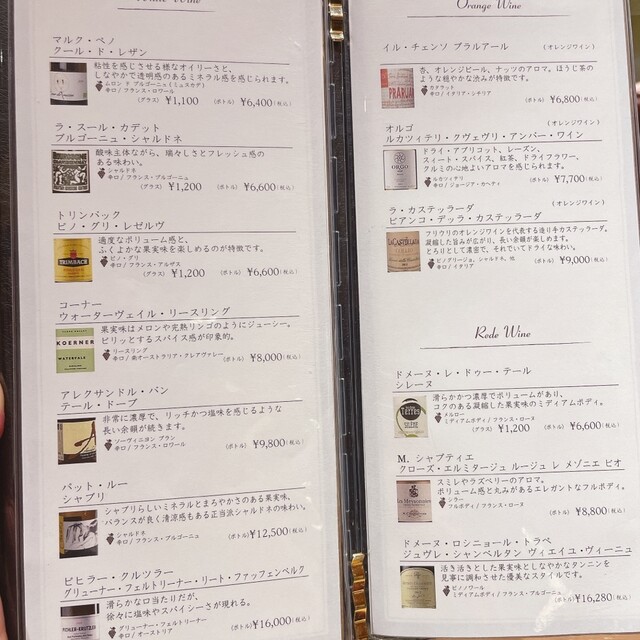 White Wine
マルク・ペノ
クール・ド・レザン
粘性を感じさせる様なオイリーさと、
しなやかで透明感のあるミネラル感を感じられます。
ムロン ド ブルゴーニュ(ミュスカデ)
辛口 / フランス・ロワール
(グラス) ¥1,100 (ボトル) ¥6,400(税込)
ラ・スール・カデット
ブルゴーニュ・シャルドネ
酸味主体ながら、瑞々しさとフレッシュ感の
ある味わい。
シャルドネ
辛口 / フランス・ブルゴーニュ
(グラス) ¥1,200 (ボトル) ¥6,600(税込)
トリンバック
ピノ・グリ・レゼルヴ
適度なボリューム感と、
ふくよかな果実味を楽しめるのが特徴です。
TRIMBACH
ピノ・グリ
辛口 / フランス・アルザス
(グラス) ¥1,200 (ボトル) ¥6,600(税込)
コーナー
ウォーターヴェイル・リースリング
果実味はメロンや完熟リンゴのようにジューシー。
ピリッとするスパイス感が印象的。
KOERNER
WATERVALE
リースリング
辛口 / 南オーストラリア・クレアヴァレー
(ボトル) ¥8,000(税込)
アレクサンドル・バン
テール・ドーブ
非常に濃厚で、リッチかつ塩味を感じるような
長い余韻が続きます。
ソーヴィニヨン ブラン
辛口 / フランス・ロワール
(ボトル) ¥9,800(税込)
パット・ルー
シャブリ
シャブリらしいミネラルとまろやかさのある果実味、
バランスが良く清涼感もある正当派シャルドネの味わい。
シャルドネ
辛口 / フランス・ブルゴーニュ
(ボトル) ¥12,500(税込)
ピヒラー・クルツラー
グリューナー・フェルトリーナー・リート・ファッフェンベルク
滑らかな口当たりだが、
徐々に塩味やスパイシーさが現れる。
PICHLER-KRUTZLER
グリューナー・フェルトリーナー
辛口 / オーストリア
(ボトル) ¥16,000(税込)
Orange Wine
イル・チェンソ プラルアール (オレンジワイン)
杏、オレンジピール、ナッツのアロマ。ほうじ茶の
ような穏やかな渋みが特徴です。
PRARUAR
カタラット
辛口 / イタリア・シチリア
(ボトル) ¥6,800(税込)
オルゴ (オレンジワイン)
ルカツィテリ・クヴェヴリ・アンバー・ワイン
ドライ・アプリコット、レーズン、
スィート・スパイス、紅茶、ドライフラワー、
クルミの心地よいアロマを感じられます。
ルカツィテリ
辛口 / ジョージア・カヘティ
(ボトル) ¥7,700(税込)
ラ・カステッラーダ (オレンジワイン)
ビアンコ・デッラ・カステッラーダ
フリウリのオレンジワインを代表する造り手カステッラーダ。
凝縮した旨みが広がり、長い余韻が楽しめます。
とろりとして濃密で、それでいてドライな味わい。
LA CASTELLADA
ピノグリージョ、シャルドネ、他
辛口 / イタリア
(ボトル) ¥9,000(税込)
Rede Wine
ドメーヌ・レ・ドゥー・テール
シレーヌ
滑らかかつ濃厚でボリュームがあり、
コクのある凝縮した果実味のミディアムボディ。
Terres
SILÈNE
メルロー
ミディアムボディ / フランス・ローヌ
(グラス) ¥1,200 (ボトル) ¥6,600(税込)
M. シャプティエ
クローズ・エルミタージュ ルージュ レ メゾニエ ビオ
スミレやラズベリーのアロマ。
ボリューム感と丸みがあるエレガントなフルボディ。
シラー
フルボディ / フランス・ローヌ
(ボトル) ¥8,800(税込)
ドメーヌ・ロシニョール・トラペ
ジュヴレ・シャンベルタン ヴィエイユ・ヴィーニュ
活き活きとした果実味としなやかなタンニンを
見事に調和させた優美なスタイルです。
ピノノワール
ミディアムボディ / フランス・ブルゴーニュ
(ボトル) ¥16,280(税込)